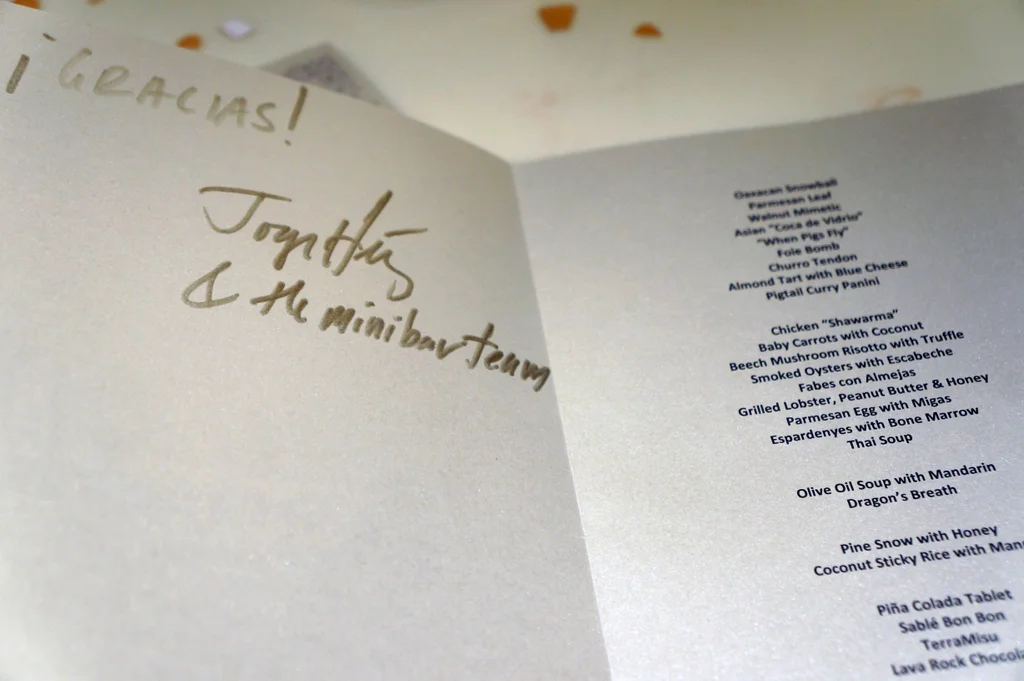 ¡GRACIAS!
& the minibar team
Oaxacan Snowball
Parmesan Leaf
Walnut Mimetic
Asian "Coca de Vidrio"
"When Pigs Fly"
Foie Bomb
Churro Tendon
Almond Tart with Blue Cheese
Pigtail Curry Panini
Chicken "Shawarma"
Baby Carrots with Coconut
Beech Mushroom Risotto with Truffle
Smoked Oysters with Escabeche
Fabes con Almejas
Grilled Lobster, Peanut Butter & Honey
Parmesan Egg with Migas
Espardenyes with Bone Marrow
Thai Soup
Olive Oil Soup with Mandarin
Dragon's Breath
Pine Snow with Honey
Coconut Sticky Rice with
Piña Colada Tablet
Sablé Bon Bon
TerraMisu
Lava Rock